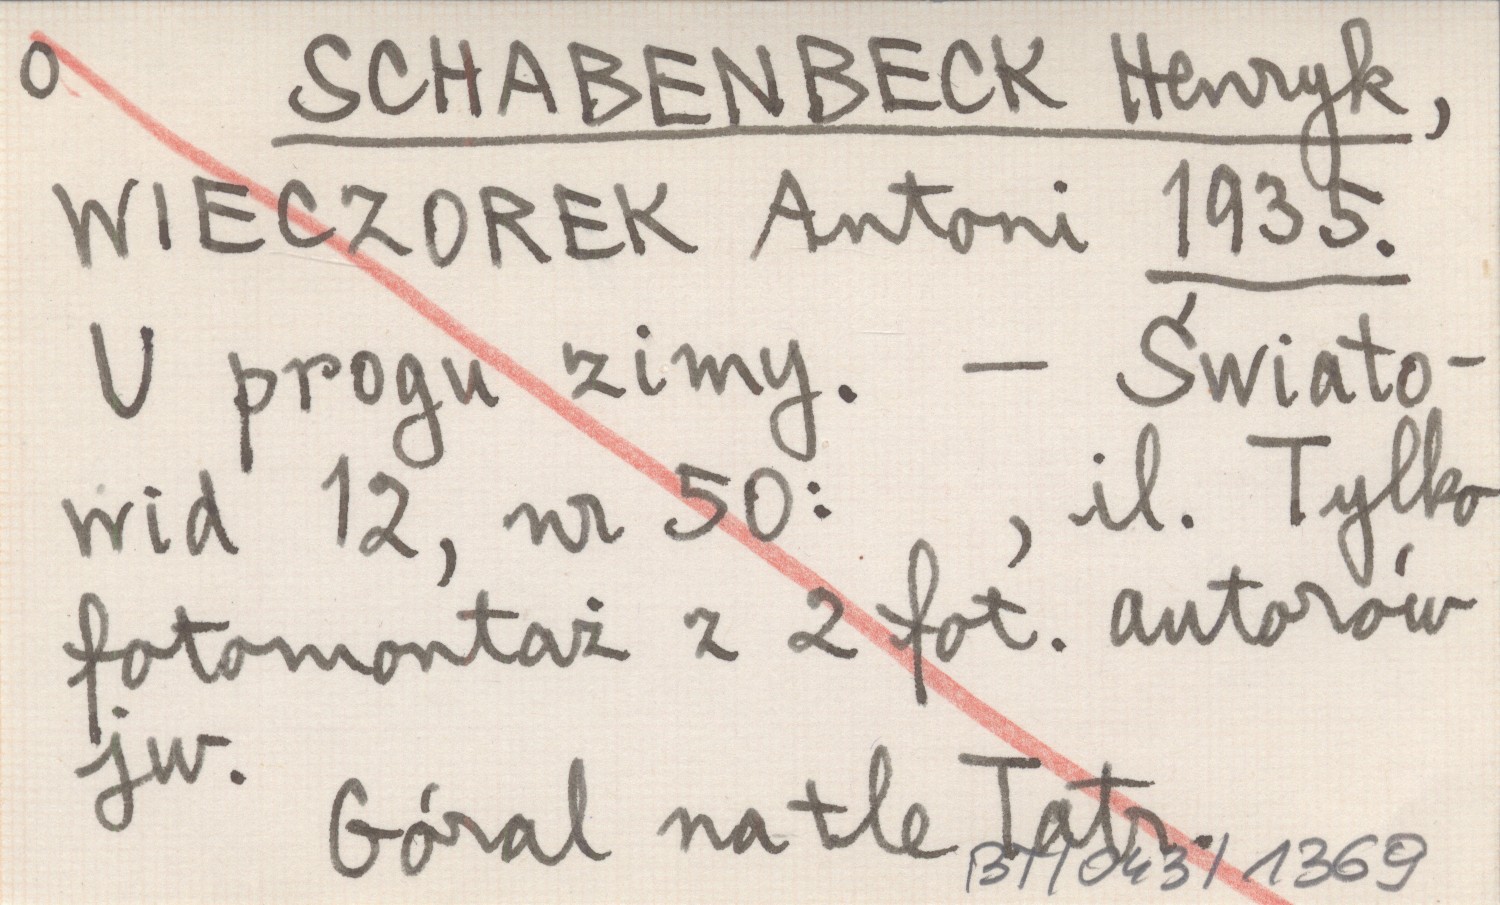 o SCHABENBECK Henryk,
WIECZOREK Antoni 1935.
U progu zimy. — Świato-
wid 12, nr 50: , il. Tylko
fotomontaż z 2 fot. autorów
jw.
Góral na tle Tatr.
BT/043/1369